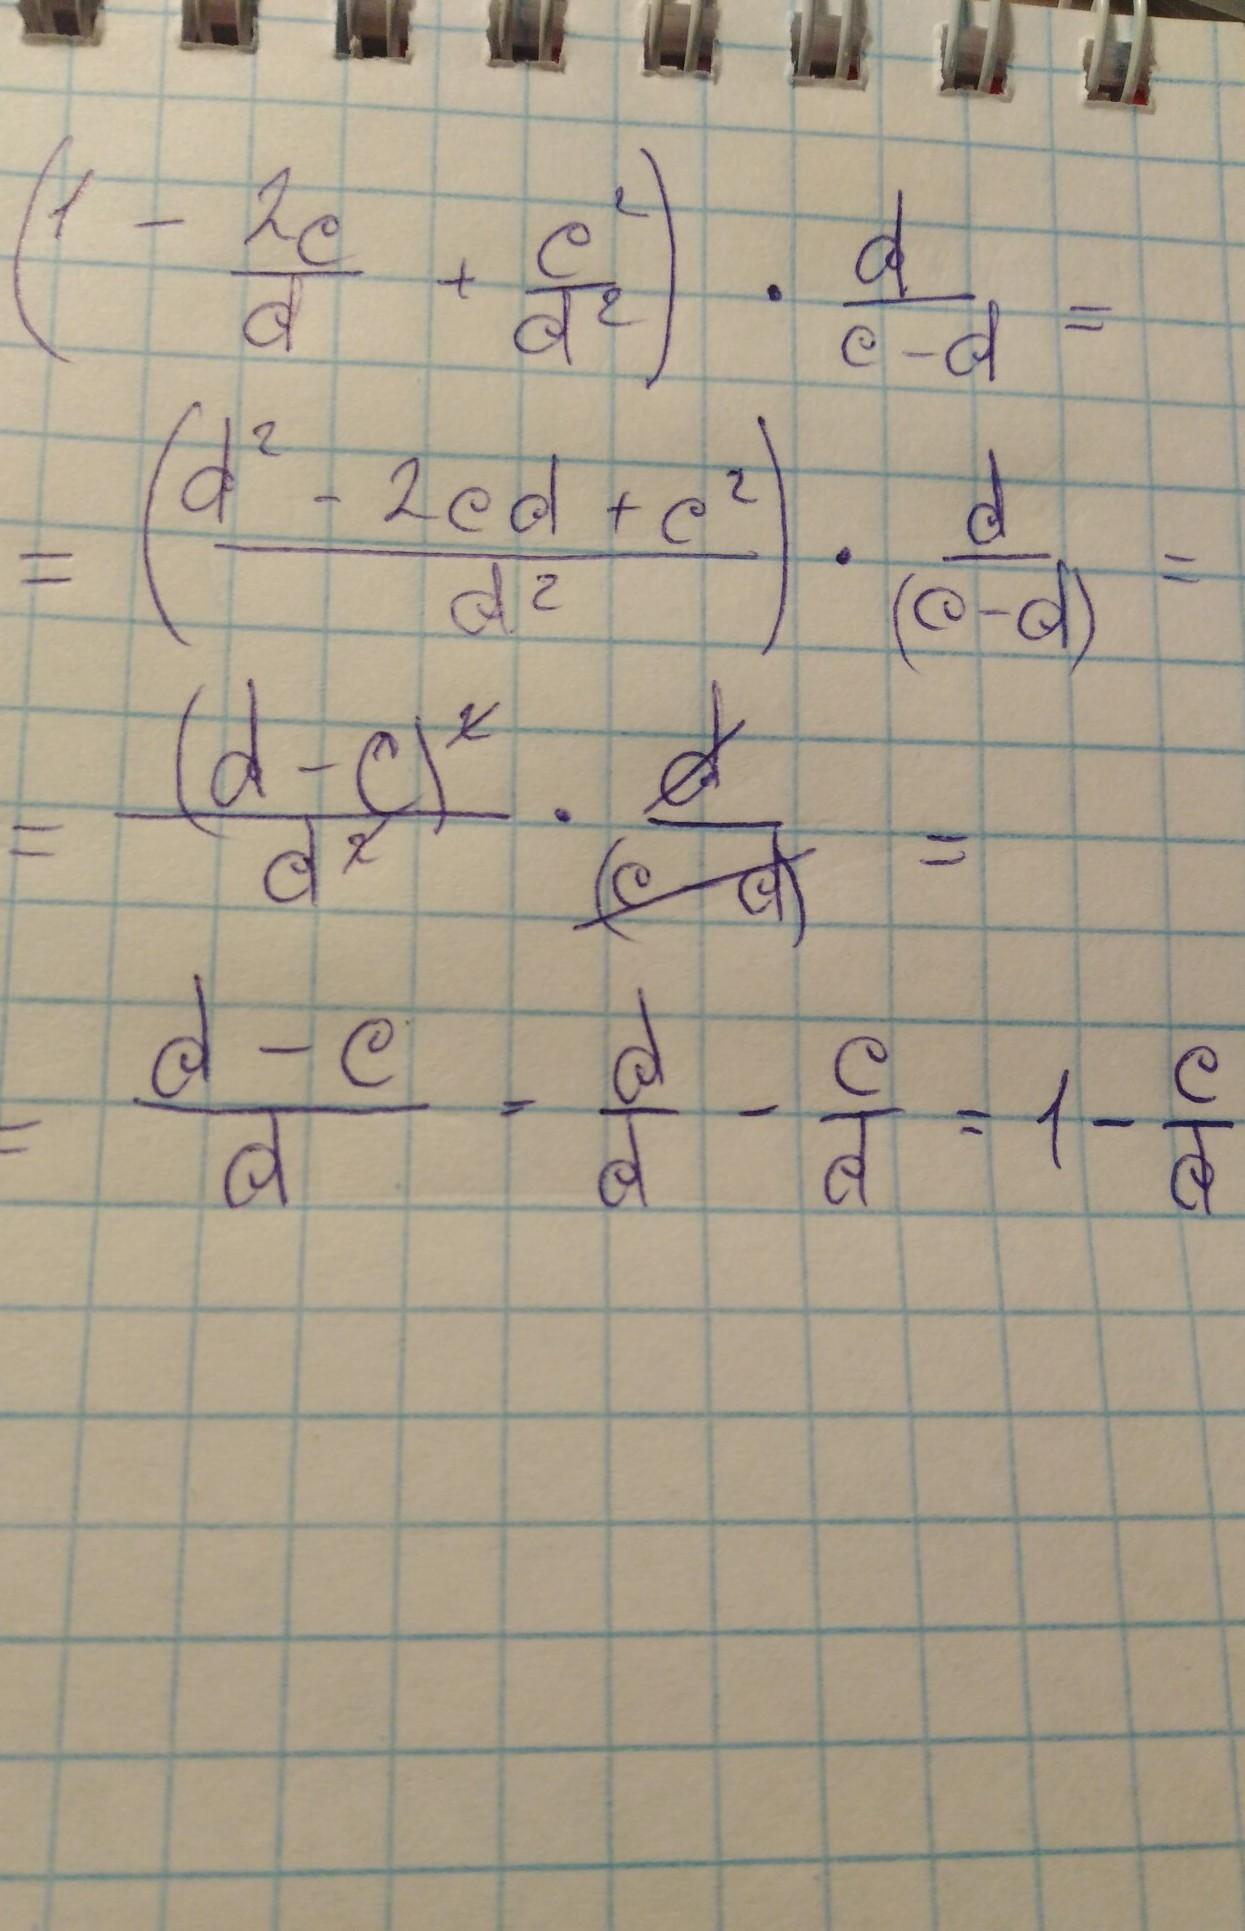 (1 - 2c/d + c²/d²) · d/(c-d) =
= ((d² - 2cd + c²)/d²) · d/(c-d) =
= (d-c)²/d² · d/(c d) =
= (d-c)/d = d/d - c/d = 1 - c/d